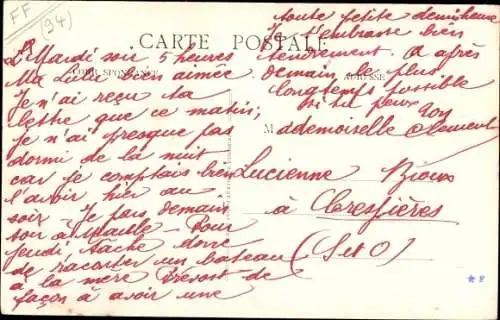 FF
(94)
CARTE POSTALE
CORRESPONDANCE
ADRESSE
Mardi soir 5 heures
Ma Lulu bien aimée
Je n'ai reçu ta
lettre que ce matin;
je n'ai presque pas
dormi de la nuit
car je comptais bien
l'avoir hier au
soir - Je pars demain
soir à Maule - Pour
jeudi, tâche donc
de raconter un bateau
à la mère Prévost de
façon à avoir une
toute petite demi heure
Je t'embrasse bien
tendrement. à après
demain le plus
longtemps possible
si tu peux
Ton
Clément
Mademoiselle
Lucienne Bioux
à Crespières
(S et O)
* 8